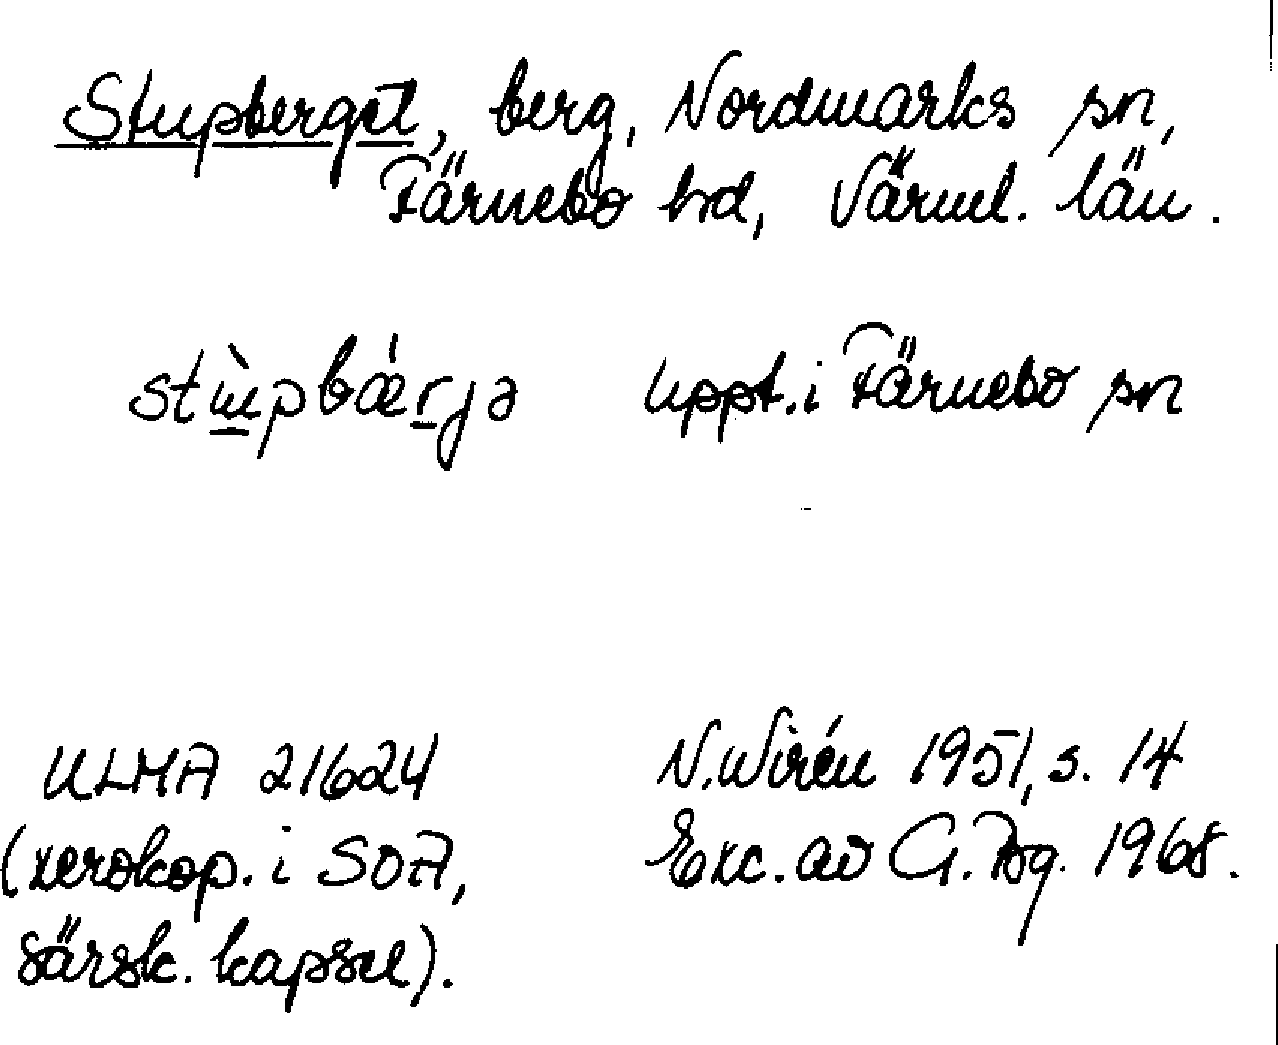 Stupberget, berg, Nordmarks sn,
Färnebo hd, Värml. län.
stu̠̇̀pbǽr̠jə uppt. i Färnebo sn
ULMA 21624 N. Wirén 1951, s. 14
(xerokop. i SOA, Exc. av G. Bg. 1968.
särsk. kapsel).